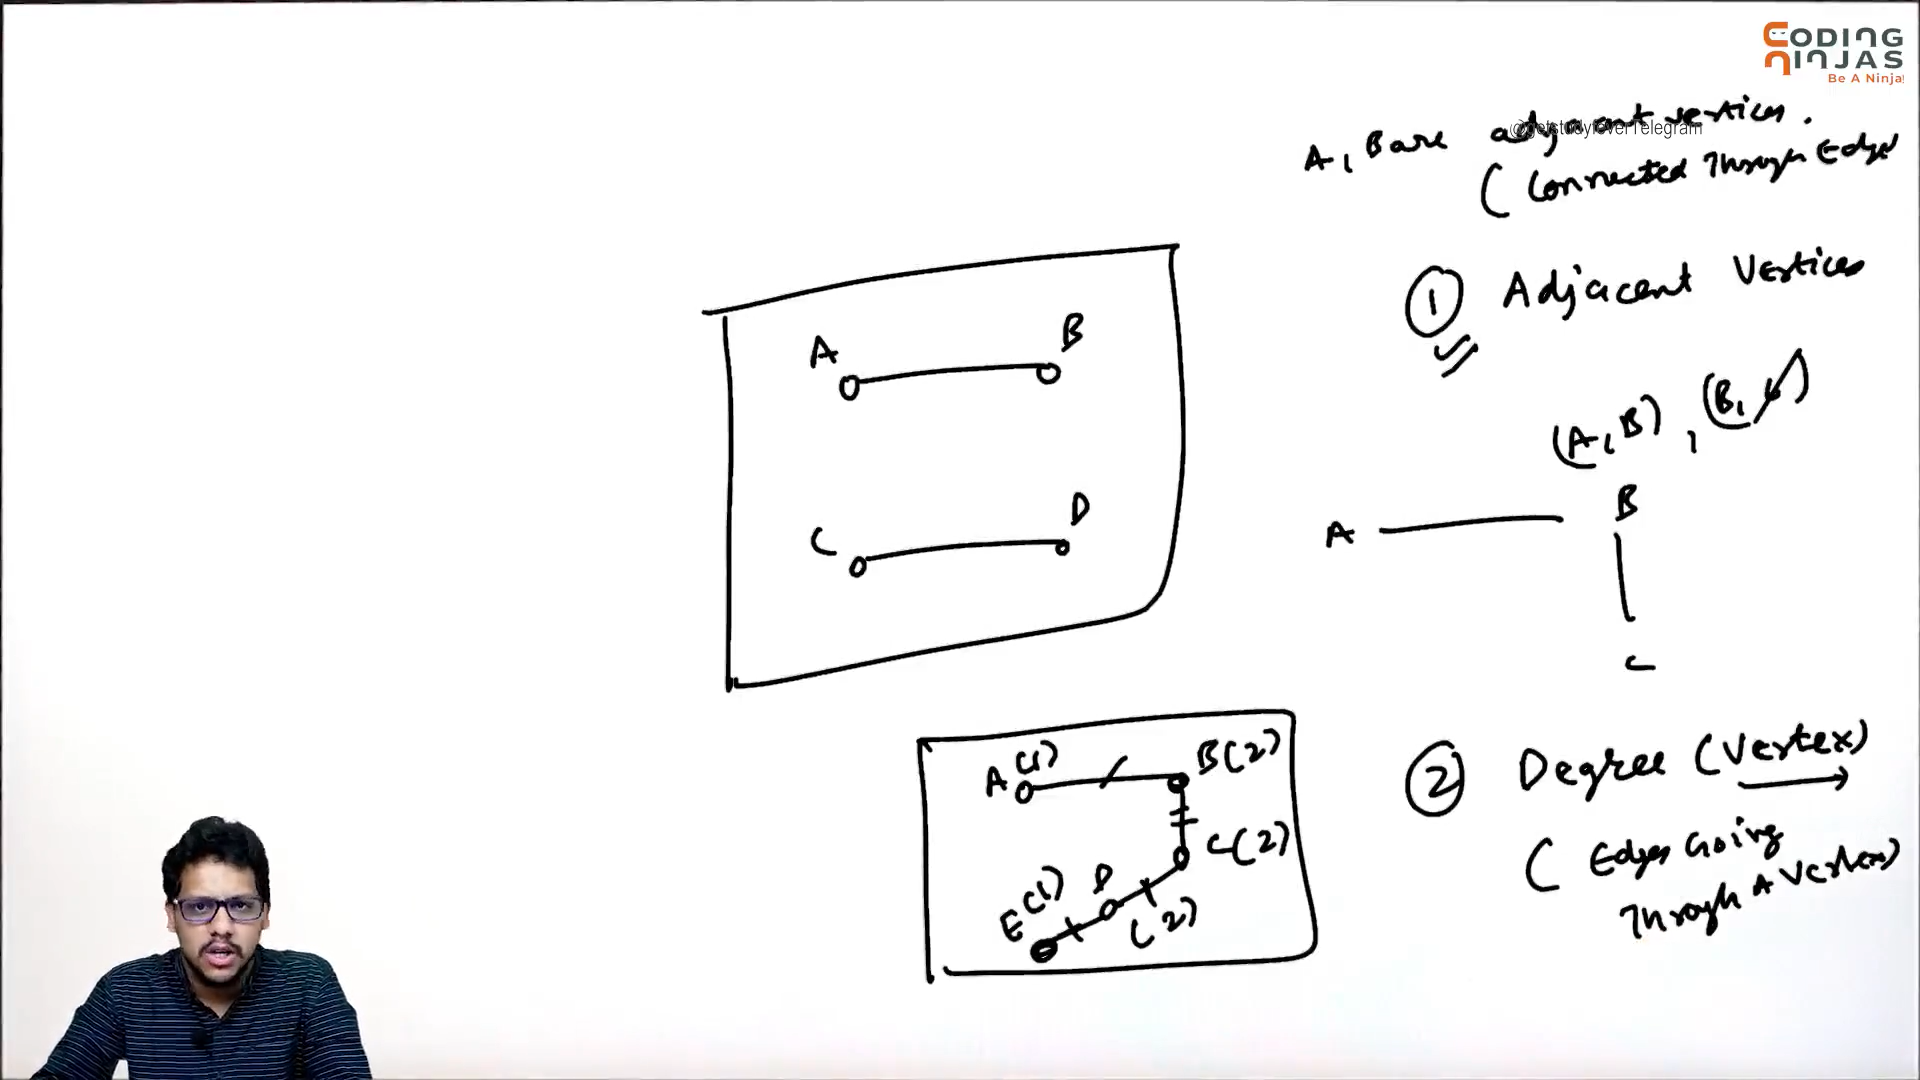 CODING
NINJAS
Be A Ninja!
@getstudyfeverTelegram
A, B are adjacent vertices.
( Connected Through Edge
1 Adjacent Vertices
A B
(A, B), (B,
B
A
C D
C
A (1) B (2)
2 Degree (Vertex)
C (2)
( Edges Going
Through A Vertex)
E (1) D (2)